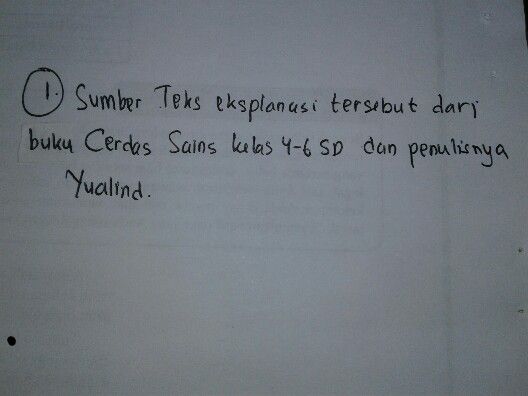 1. Sumber Teks eksplanasi tersebut dari
buku Cerdas Sains kelas 4-6 SD dan penulisnya
Yualind.